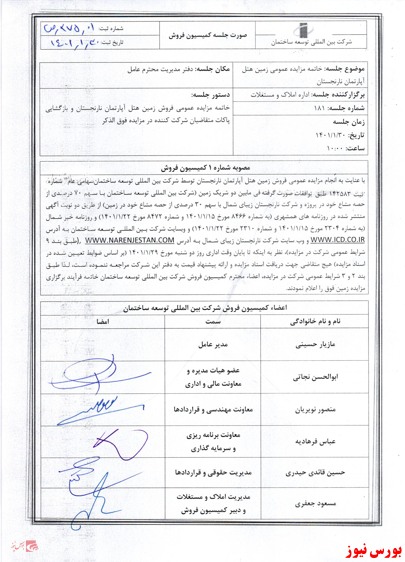 شماره ثبت:
تاریخ ثبت: ۱۴۰۱/۱/۳۰
صورت جلسه کمیسیون فروش
شرکت بین المللی توسعه ساختمان
موضوع جلسه: خاتمه مزایده عمومی زمین هتل
آپارتمان نارنجستان
مکان جلسه: دفتر مدیریت محترم عامل
برگزارکننده جلسه: اداره املاک و مستغلات
شماره جلسه: ۱۸۱
زمان جلسه
تاریخ: ۱۴۰۱/۱/۳۰
ساعت: ۱۰:۰۰
دستور جلسه:
خاتمه مزایده عمومی فروش زمین هتل آپارتمان نارنجستان و بازگشایی
پاکات متقاضیان شرکت کننده در مزایده فوق الذکر
مصوبه شماره ۱ کمیسیون فروش
با عنایت به انجام مزایده عمومی فروش زمین هتل آپارتمان نارنجستان توسط شرکت بین المللی توسعه ساختمان(سهامی عام) شماره
ثبت ۱۴۲۵۸۳ طبق توافقات صورت گرفته فی مابین دو شریک زمین (شرکت بین المللی توسعه ساختمان با سهم ۷۰ درصدی از
حصه مشاع خود در پروژه و شرکت نارنجستان زیبای شمال با سهم ۳۰ درصدی از حصه مشاع خود در زمین) از طریق دو نوبت آگهی
منتشر شده در روزنامه های همشهری (به شماره ۸۴۶۶ مورخ ۱۴۰۱/۱/۱۵ و شماره ۸۴۷۲ مورخ ۱۴۰۱/۱/۲۲) و روزنامه خبر شمال
(به شماره ۲۳۰۴ مورخ ۱۴۰۱/۱/۱۵ و شماره ۲۳۱۰ مورخ ۱۴۰۱/۱/۲۲) و وبسایت شرکت بین المللی توسعه ساختمان به آدرس
WWW.ICD.CO.IR و وب سایت شرکت نارنجستان زیبای شمال به آدرس WWW.NARENJESTAN.COM (طبق بند ۹
شرایط عمومی شرکت در مزایده)، نظر به اینکه تا پایان وقت اداری روز دو شنبه مورخ ۱۴۰۱/۱/۲۹ (بر اساس ضوابط تعیین شده در
اسناد مزایده) هیچ متقاضی جهت دریافت اسناد مزایده و ارائه پیشنهاد قیمت به دفتر این شرکت مراجعه ننموده است، لذا طبق
بند ۲ و ۳ شرایط عمومی شرکت در مزایده، اعضاء محترم کمیسیون فروش شرکت بین المللی توسعه ساختمان خاتمه فرآیند برگزاری
مزایده زمین فوق را اعلام نمودند.
اعضاء کمیسیون فروش شرکت بین المللی توسعه ساختمان
نام و نام خانوادگی سمت امضا
مازیار حسینی مدیر عامل
ابوالحسن نجاتی عضو هیات مدیره و
معاونت مالی و اداری
منصور نویریان معاونت مهندسی و قراردادها
عباس فرهادیه معاونت برنامه ریزی
و سرمایه گذاری
حسین قائدی حیدری مدیریت حقوقی و قراردادها
مسعود جعفری مدیریت املاک و مستغلات
و دبیر کمیسیون فروش
بورس نیوز